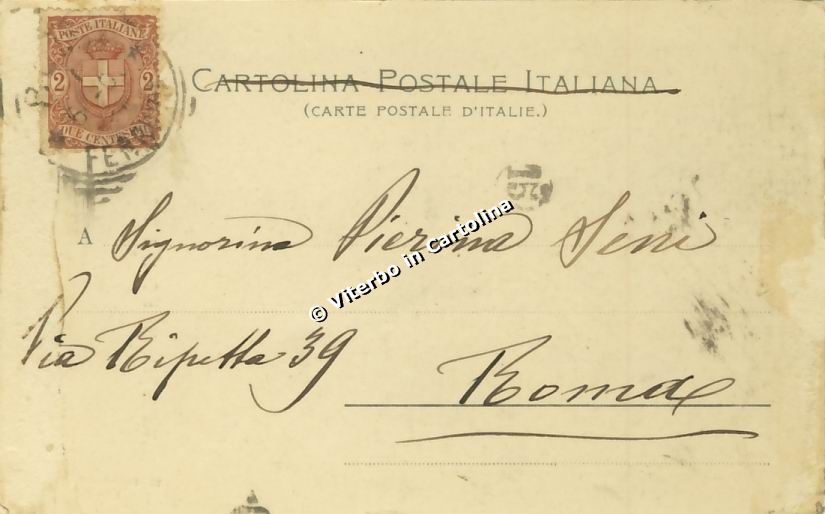 POSTE ITALIANE
2 2
DUE CENTESIMI
CARTOLINA POSTALE ITALIANA
(CARTE POSTALE D'ITALIE.)
15
A Signorina Pierina Senni
© Viterbo in Cartolina
Via Ripetta 39
Roma